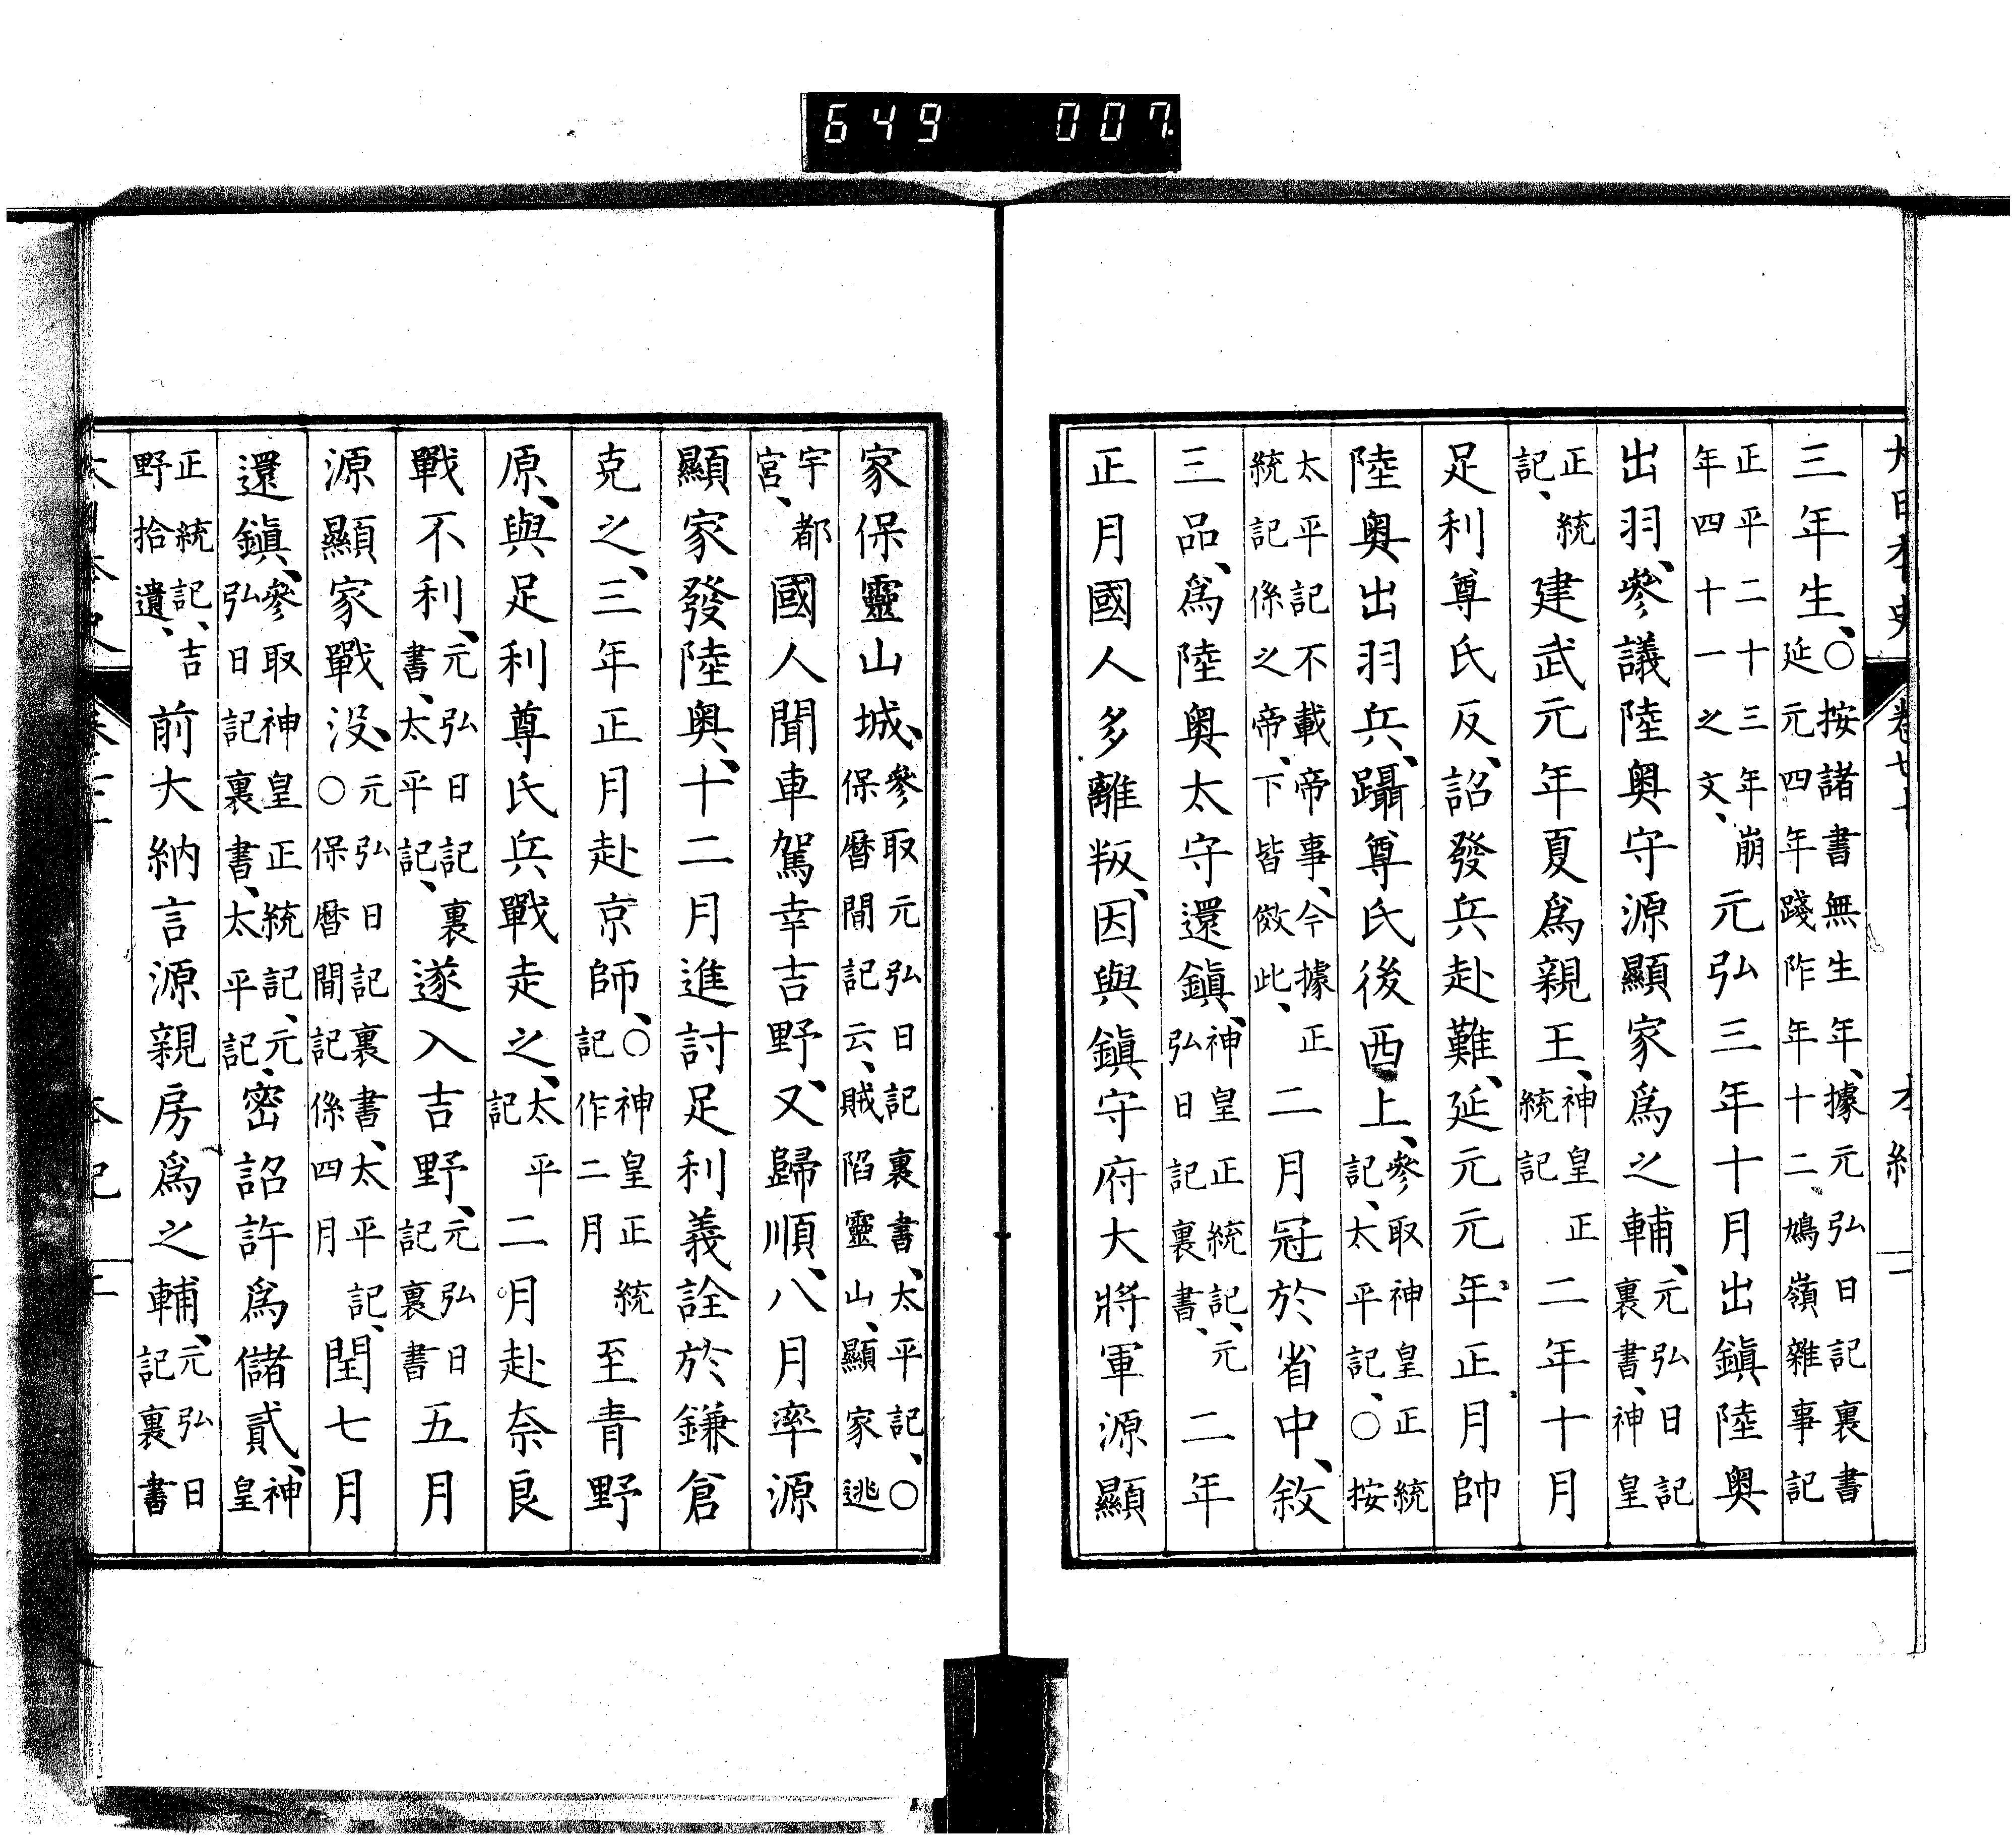 大日本史 卷七十 本紀 一
三年生、○按諸書無生年、據元弘日記裏書延元四年踐阼年十二、鳩嶺雜事記
正平二十三年崩年四十一之文、元弘三年十月出鎮陸奥
出羽、參議陸奥守源顯家爲之輔、元弘日記裏書、神皇
正統記、建武元年夏爲親王、神皇正統記二年十月
足利尊氏反、詔發兵赴難、延元元年正月帥
陸奥出羽兵、躡尊氏後西上、參取神皇正統記、太平記、○按
太平記不載帝事、今據正統記係之帝、下皆倣此、二月冠於省中、敘
三品、爲陸奥太守還鎮、神皇正統記、元弘日記裏書、二年
正月國人多離叛、因與鎮守府大將軍源顯
家保靈山城、參取元弘日記裏書、太平記、○保暦間記云、賊陷靈山、顯家逃
宇都宮、國人聞車駕幸吉野、又歸順、八月率源
顯家發陸奥、十二月進討足利義詮於鎌倉
克之、三年正月赴京師、○神皇正統記作二月至青野
原、與足利尊氏兵戰走之、太平記二月赴奈良
戰不利、元弘日記裏書、太平記、遂入吉野、元弘日記裏書五月
源顯家戰沒、元弘日記裏書、太平記、○保暦間記係四月閏七月
還鎮、參取神皇正統記、元弘日記裏書、太平記、密詔許爲儲貳、神皇
正統記、吉野拾遺、前大納言源親房爲之輔、元弘日記裏書
649 007